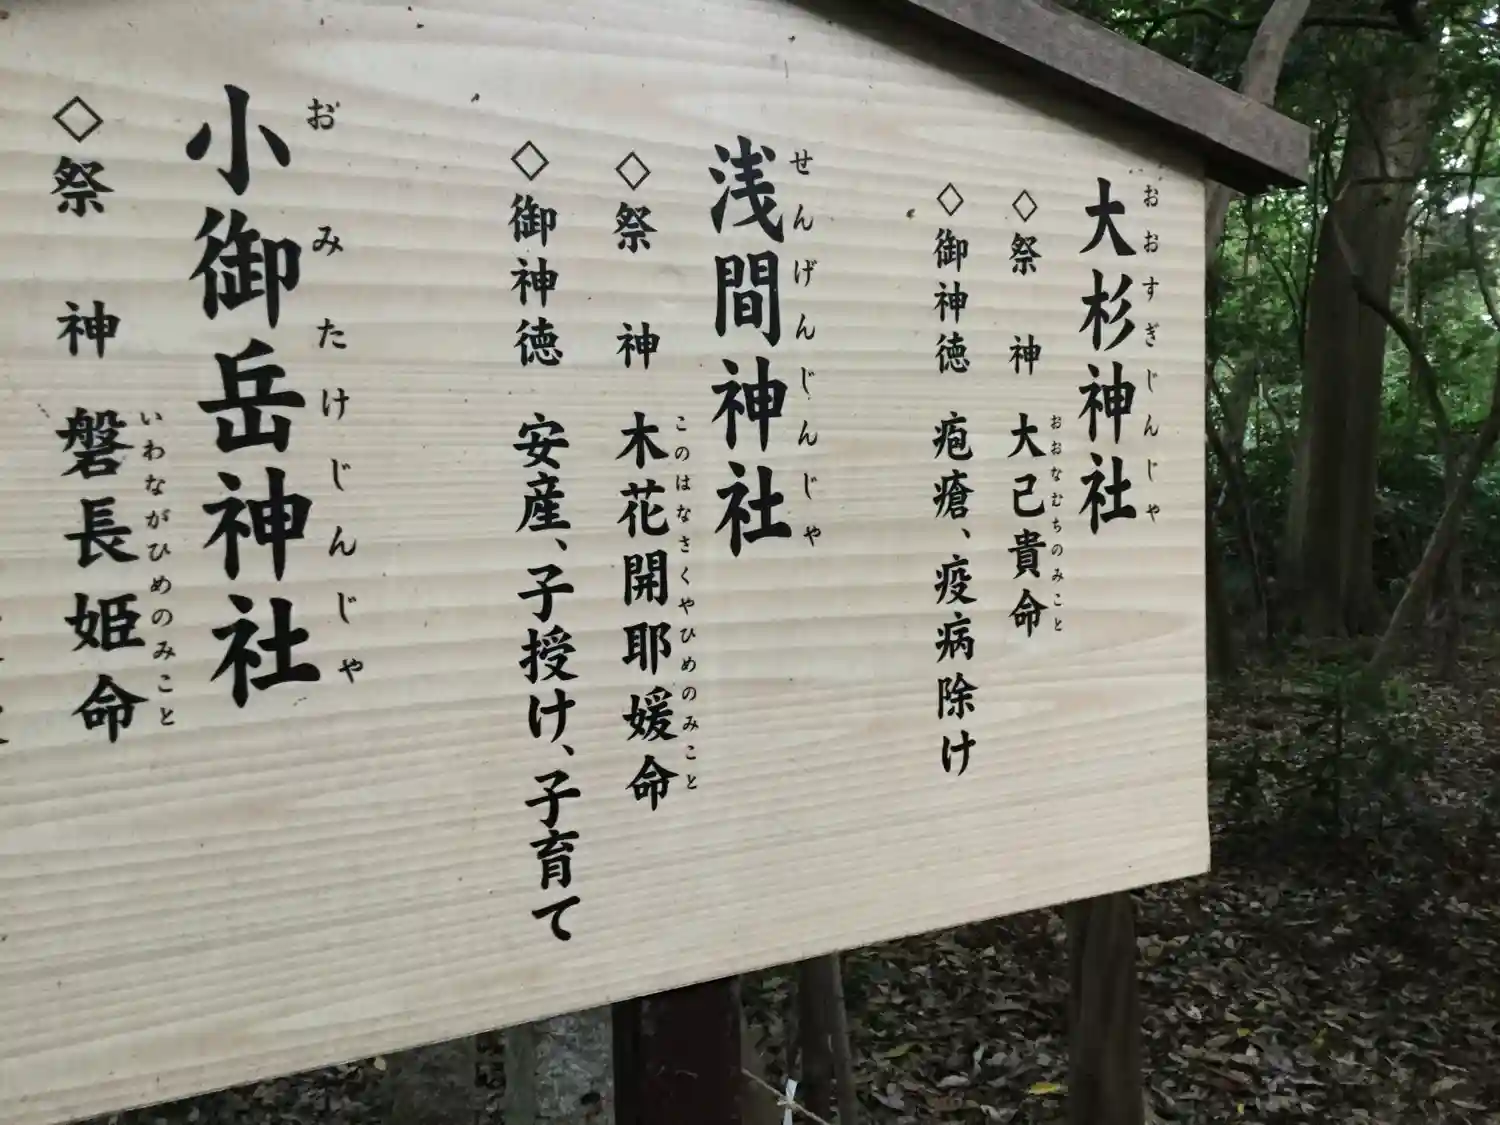 大杉神社
おおすぎじんじゃ
◇祭 神 大己貴命
おおなむちのみこと
◇御神徳 疱瘡、疫病除け
浅間神社
せんげんじんじゃ
◇祭 神 木花開耶媛命
このはなさくやひめのみこと
◇御神徳 安産、子授け、子育て
小御岳神社
おみたけじんじゃ
◇祭 神 磐長姫命
いわながひめのみこと